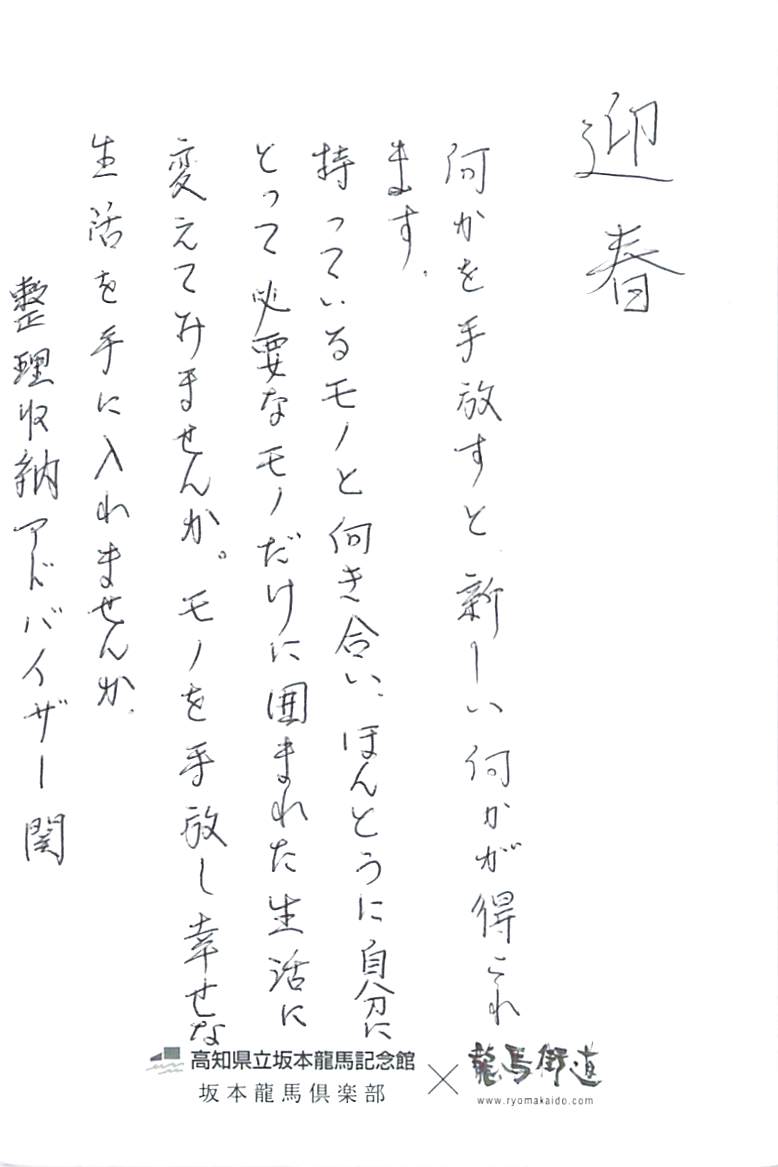 迎春
何かを手放すと新しい何かが得られ
ます.
持っているモノと向き合い、ほんとうに自分に
とって必要なモノだけに囲まれた生活に
変えてみませんか。モノを手放し幸せな
生活を手に入れませんか.
整理収納アドバイザー 関
高知県立坂本龍馬記念館
坂本龍馬倶楽部
×
龍馬街道
www.ryomakaido.com